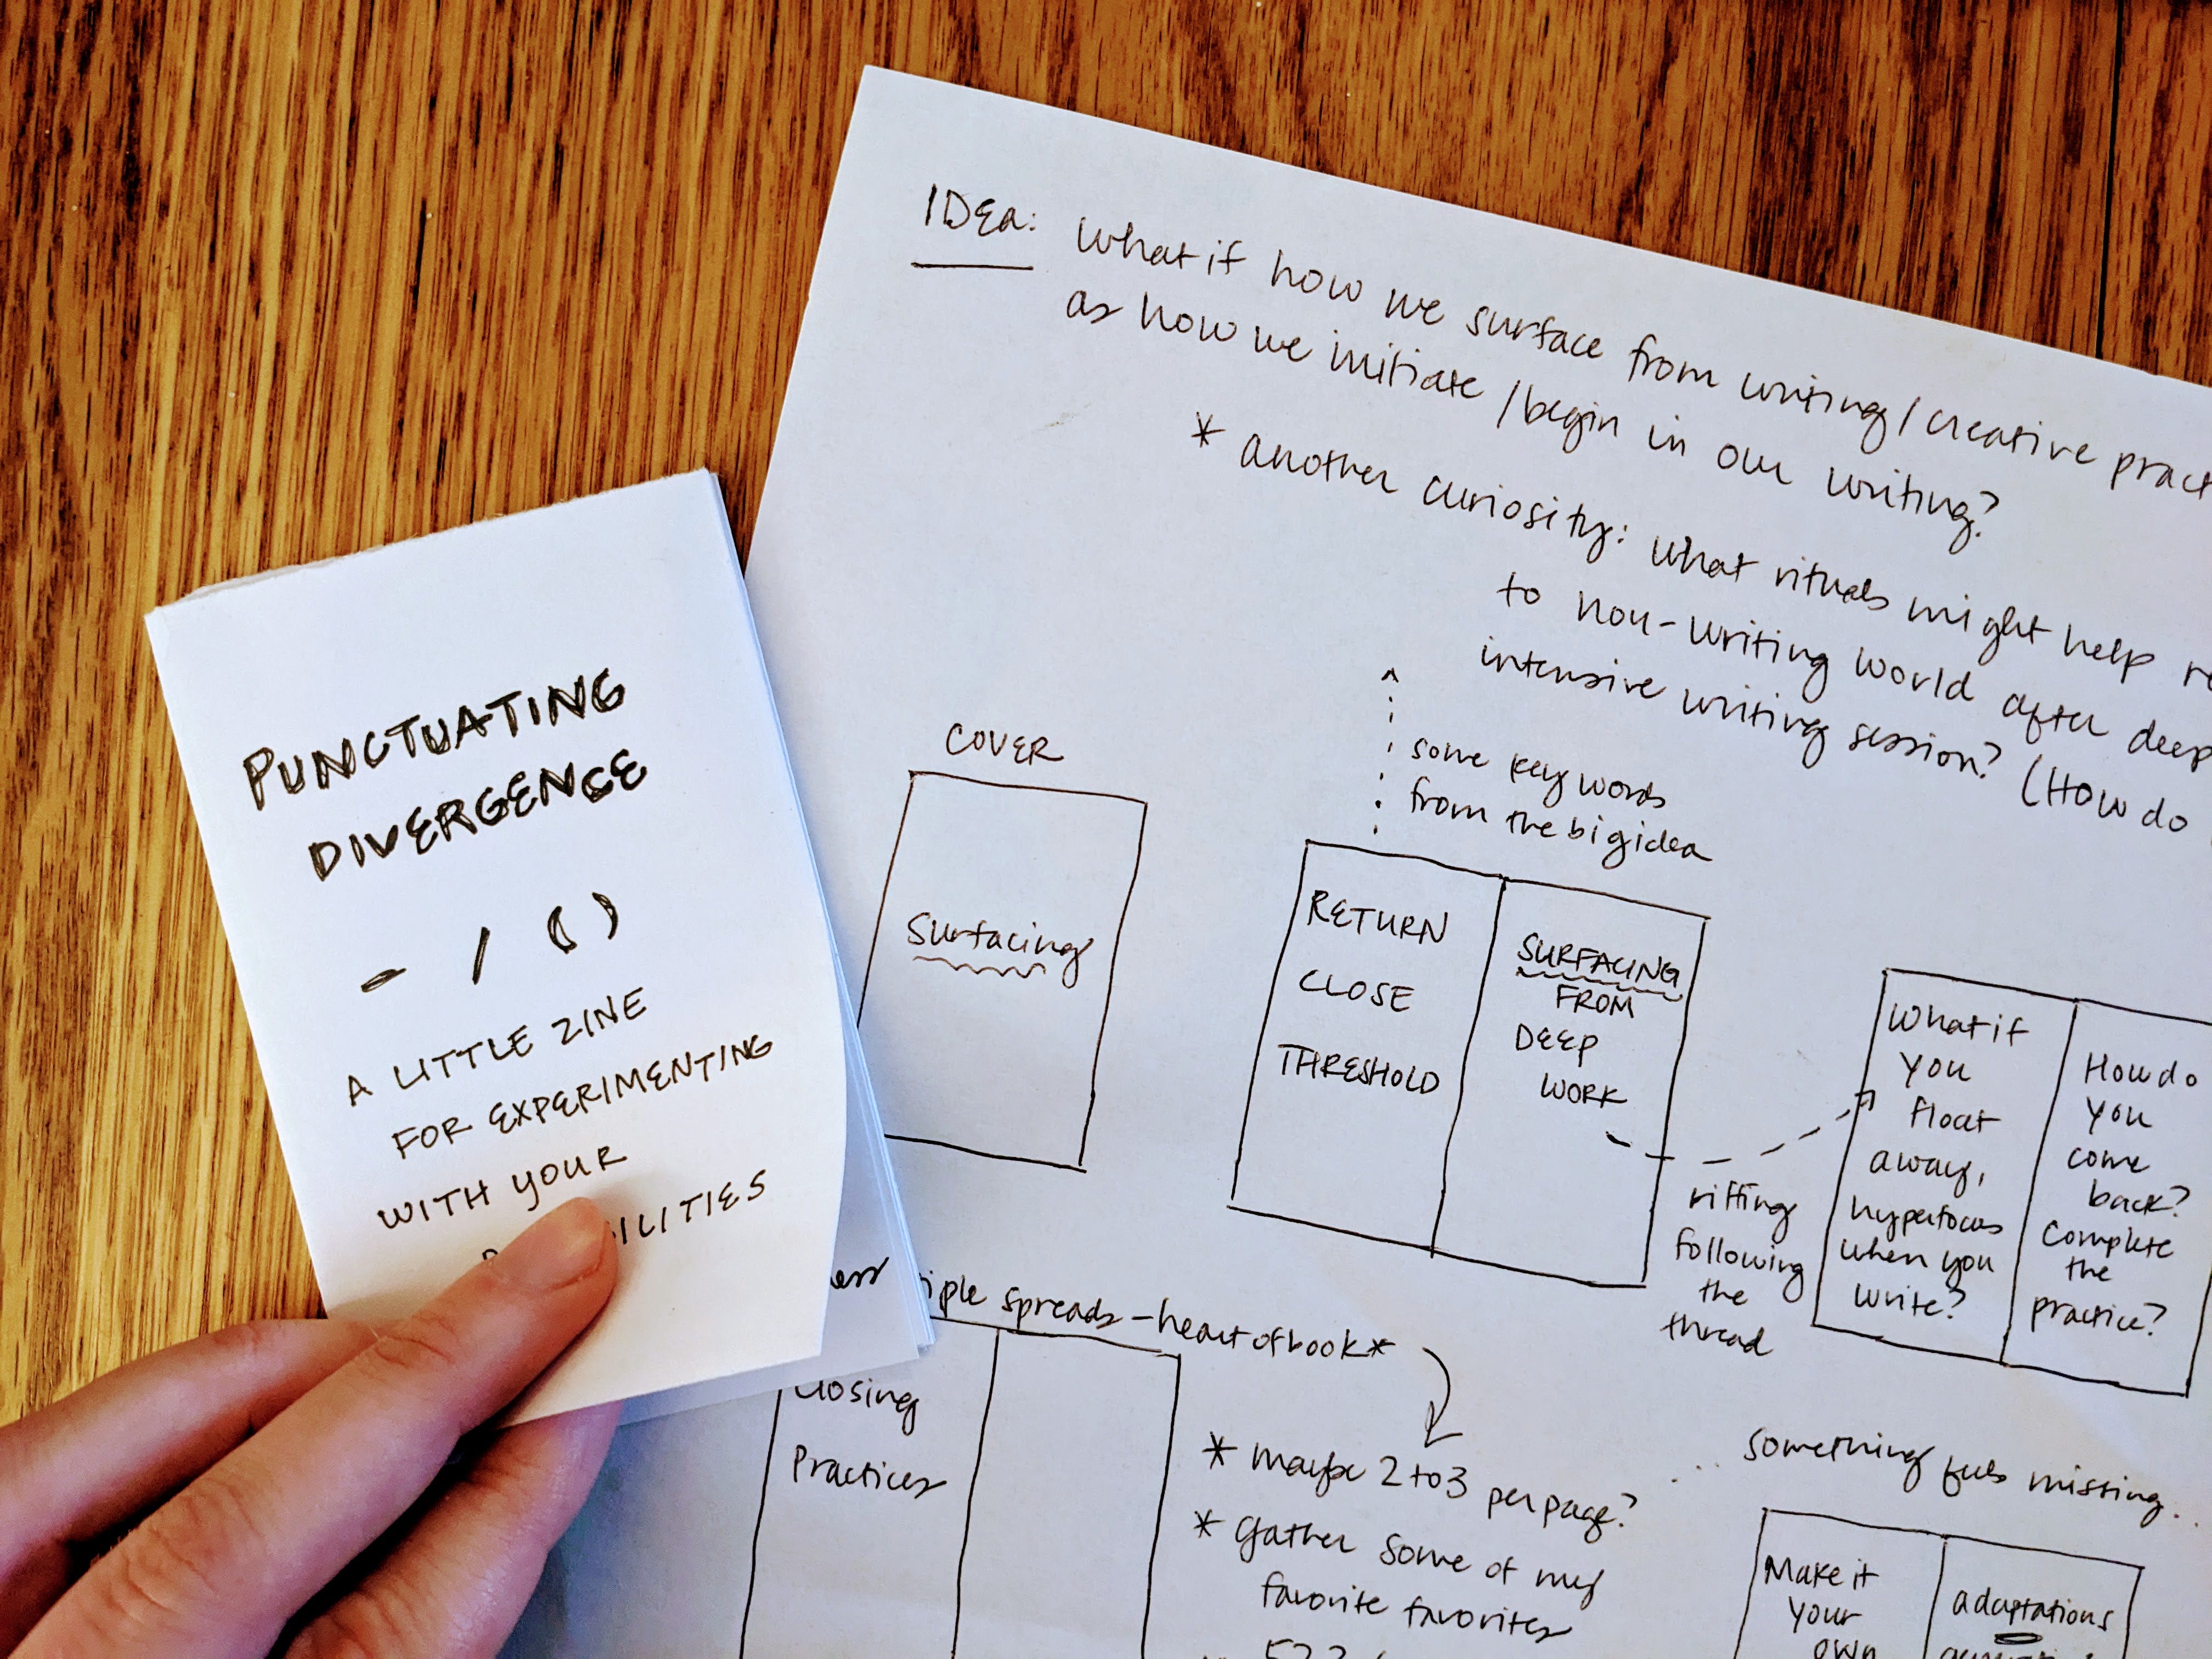 PUNCTUATING
DIVERGENCE
- / ( )
A LITTLE ZINE
FOR EXPERIMENTING
WITH YOUR
IDEa: What if how we surface from writing / creative
as how we initiate / begin in our writing?
* another curiosity: what rituals might help
to non-writing world after deep
intensive writing session? (How do
COVER
Surfacing
some key words
from the big idea
RETURN
CLOSE
THRESHOLD
SURFACING
FROM
DEEP
WORK
riffing
following
the
thread
What if
you
float
away,
hyperfocus
when you
write?
How do
you
come
back?
Complete
the
practice?
spreads - heart of book *
Closing
Practices
* maybe 2 to 3 per page?
* Gather some of my
favorite favorites
... something feels missing...
Make it
your
own
adaptations